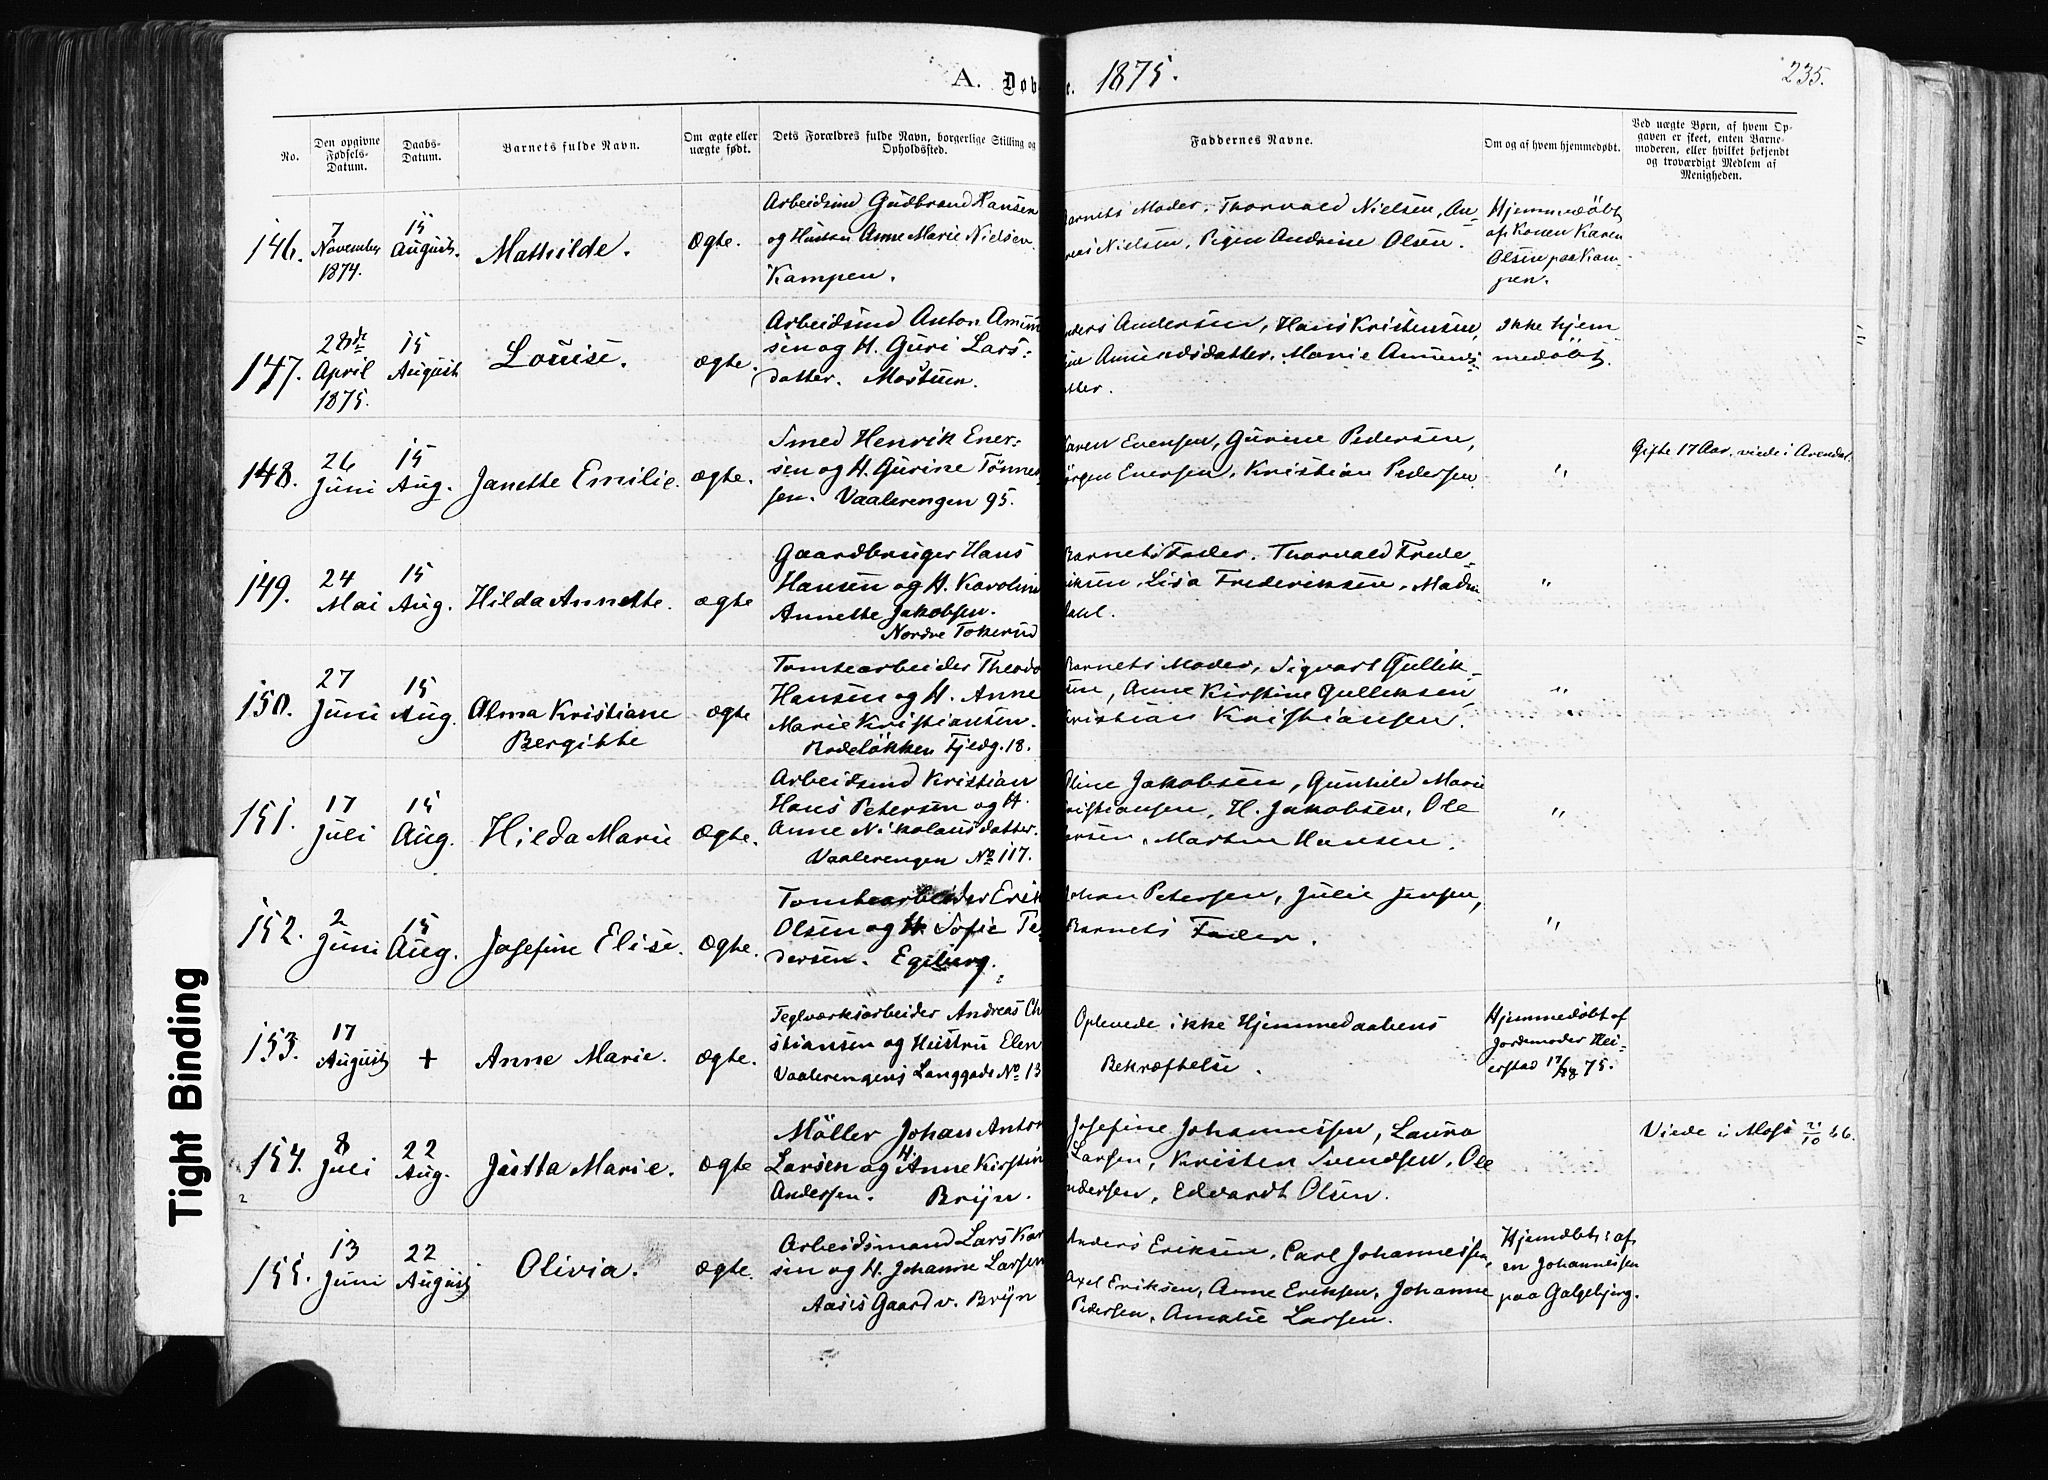 A. Døb e. 1875.
235.
No.
Den opgivne Fødsels-Datum.
Daabs-Datum.
Barnets fulde Navn.
Om ægte eller uægte født.
Dets Forældres fulde Navn, borgerlige Stilling og Opholdssted.
Faddernes Navne.
Om og af hvem hjemmedøbt.
Ved uægte Børn, af hvem Opgaven er skeet, enten Barnemoderen, eller hvilket bekjendt og troværdigt Medlem af Menigheden.
146.
7 November 1874.
15 August.
Mathilde.
Ægte.
Arbeidsmd Gudbrand Hansen
og Hustru Anne Marie Nielsen.
Kampen.
Barnets Moder, Thorvald Nielsen, An-
Nielsen, Pigen Andrine Olsen.
Hjemmedöbt
af Konen Karen
Olsen paa Kam-
pen.
147.
28de April 1875.
15 August
Louise.
ægte.
Arbeidsmd Anton Amun
sen og H. Guri Lars-
datter. Mostuen.
Andersen, Hans Kristensen,
Amundsdatter, Marie Amunds-
atter.
Ikke hjem
medöbt.
148.
26 Juni
15 Aug.
Janette Emilie.
ægte.
Smed Henrik Ener-
sen og H. Gurine Tönne
sen. Vaalerengen 95.
Karen Evensen, Gurine Pedersen,
Enersen, Kristian Pedersen
"
Gifte 17 Aar, viede i Arendal.
149.
24 Mai
15 Aug.
Hilda Annette.
ægte
Gaardbruger Hans
Hansen og H. Karoline
Annette Jakobsen.
Nordre Tokerud
Barnets Fader, Thorvald Frede-
riksen, Lisa Frederiksen,
dahl.
"
150.
27 Juni
15 Aug.
Alma Kristiane
Bergitte
ægte
Tomtearbeider Theodo
Hansen og H. Anne
Marie Kristiansen.
Rodelökken Fjeldg. 18.
Barnets Moder, Sigvart Gullik-
sen, Anne Kirstine Gulliksen
Kristian Kristiansen.
"
151.
17 Juli
15 Aug.
Hilda Marie
Ægte.
Arbeidsmd Kristian
Hans Petersen og H.
Anne Nikolausdatter.
Vaalerengen No 117.
Oline Jakobsen, Gunhild Marie
Kristiansen, H. Jakobsen, Ole
Martin Hansen.
"
152.
2 Juni
15 Aug.
Josefine Elise.
Ægte.
Tomtearbeider Erik
Olsen og H. Sofie Pe-
dersen. Egeberg.
Johan Petersen, Julie Jensen,
Barnets Fader.
"
153.
17 August
+
Anne Marie.
Ægte.
Teglværksarbeider Andreas Ch
stiansen og Hustru Elen
Vaalerengens Langgade No 13
Oplevede ikke Hjemmedaabens
Bekræftelse.
Hjemmedöbt af
Jordemoder Hei-
erstad 17/8 75.
154.
8 Juli
22 Aug.
Jutta Marie.
Ægte
Möller Johan Anton
Larsen og H. Anne Kirstin
Andersen. Bryn.
Josefine Johannessen, Laura
Larsen, Kristen Svendsen, Ole
ndersen, Edvardt Olsen.
Viede i Moss 21/10 66.
155.
13 Juni
22 August
Olivia.
Ægte.
Arbeidsmand Lars Kar
sen og H. Johanne Larsen
Gaard v. Bryn
Anders Eriksen, Carl Johannessen,
Axel Eriksen, Anne Eriksen, Johanne
Pedersen, Amalie Larsen.
Hjemdöbt: af
en Johannessen
paa Galgebjerg.
Tight Binding